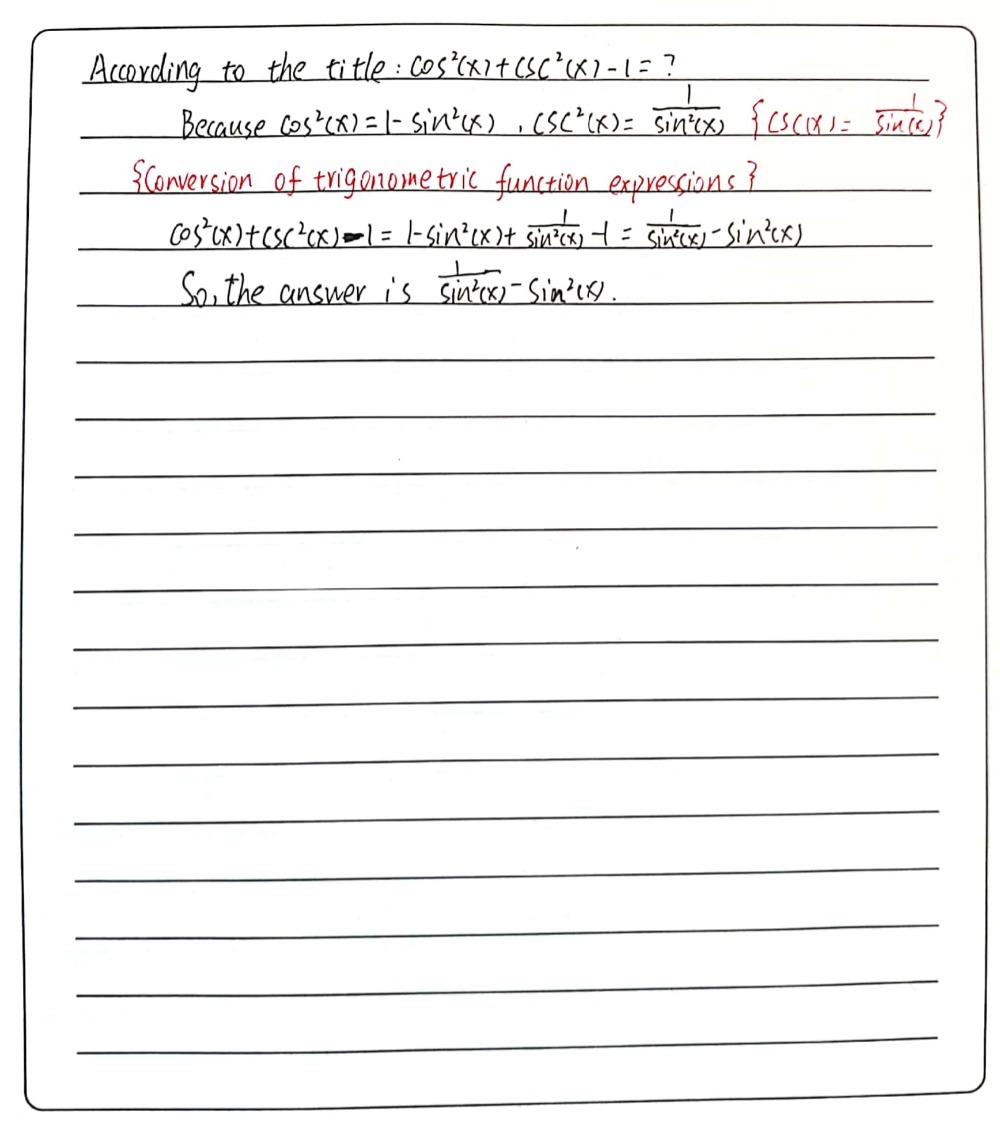 According to the title : cos²(x)+csc²(x)-1=?
Because cos²(x)=1-sin²(x), csc²(x)=1/sin²(x) {csc(x)=1/sin(x)}
{Conversion of trigonometric function expressions}
cos²(x)+csc²(x)-1=1-sin²(x)+1/sin²(x)-1=1/sin²(x)-sin²(x)
So, the answer is 1/sin²(x)-sin²(x).